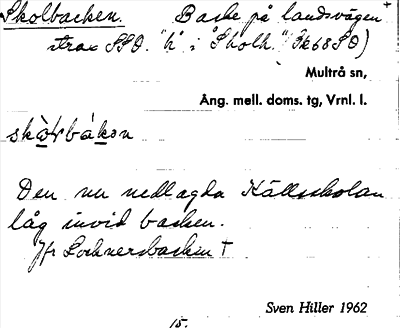 Skolbacken. Backe på landsvägen
strax SSO. "h" i "Skolh." (3k68SO)
Multrå sn,
Ång. mell. doms. tg, Vrnl. l.
Den nu nedlagda Källskolan
låg invid backen.
Jfr Socknersbacken †
Sven Hiller 1962
15.